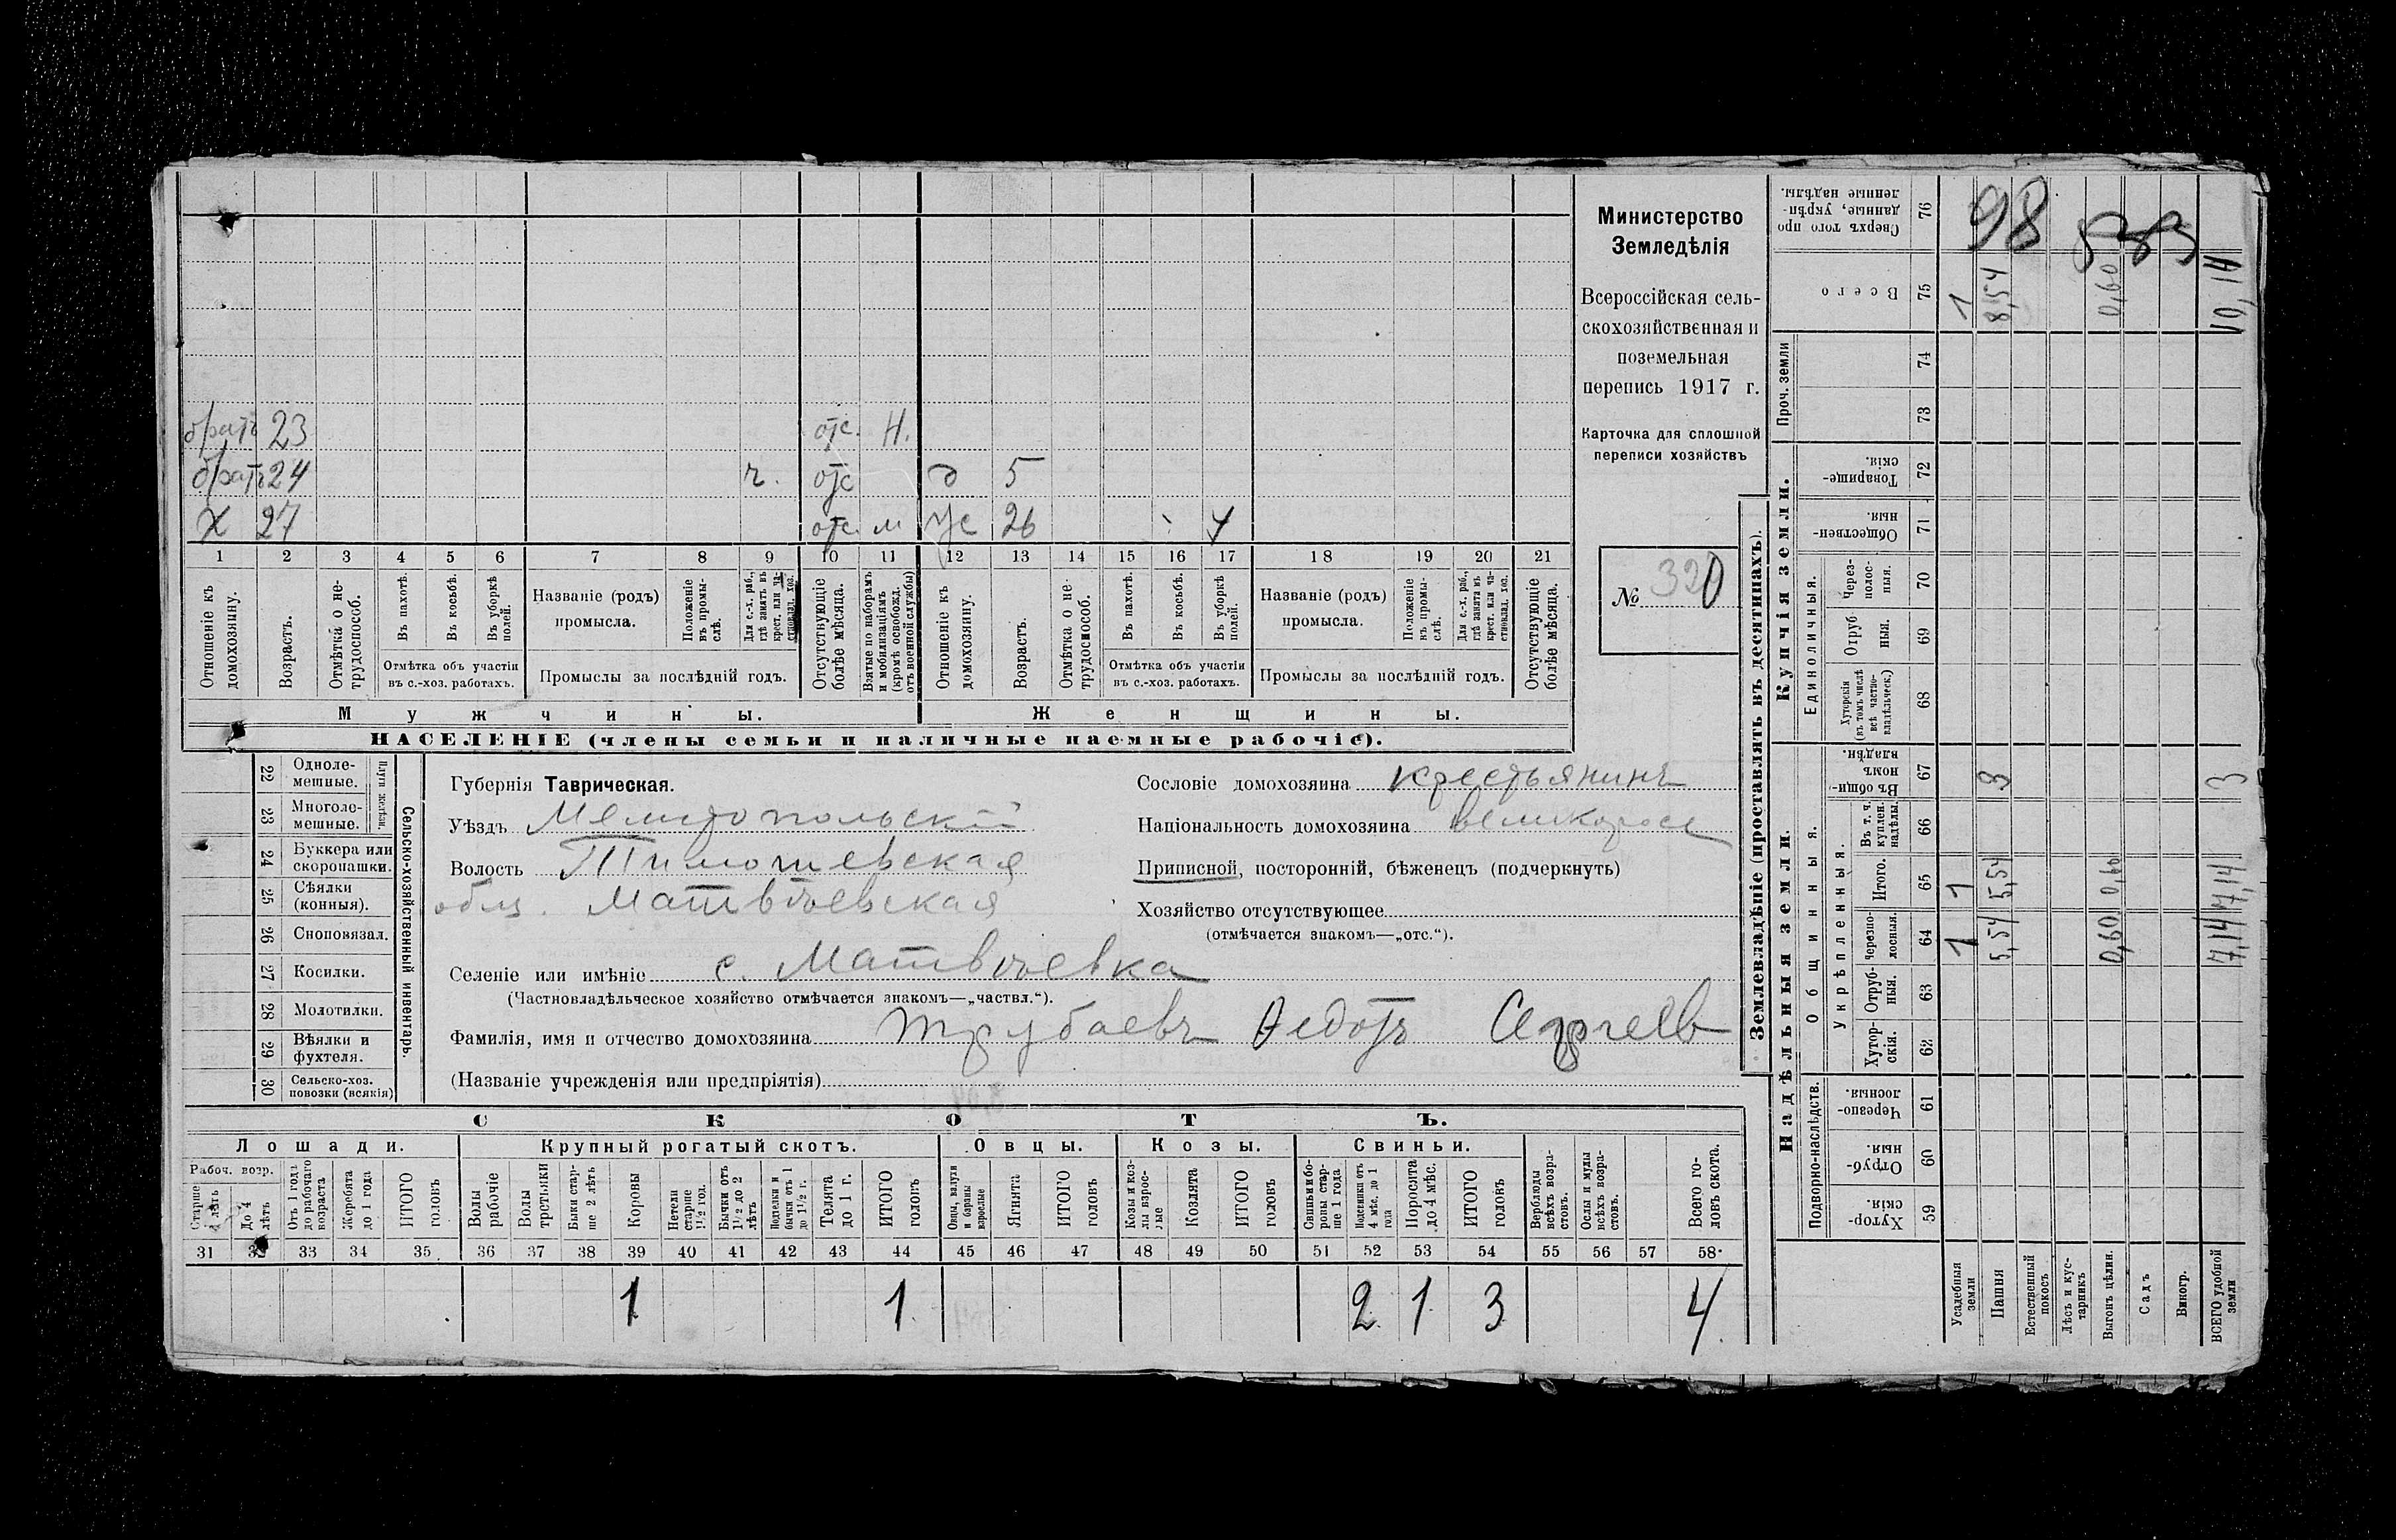 Министерство
Земледѣлія
Всероссійская сель-
скохозяйственная и
поземельная
перепись 1917 г.
Карточка для сплошной
переписи хозяйствъ
№ 320
братъ 23 отс. Н.
братъ 24 г. отс д 5
Х 27 отс. м 26
1 2 3 4 5 6 7 8 9 10 11 12 13 14 15 16 17 18 19 20 21
Отношеніе къ домохозяину.
Возрастъ.
Отмѣтка о не-трудоспособ.
Въ пахотѣ.
Въ косьбѣ.
Въ уборкѣ полей.
Отмѣтка объ участіи
въ с.-хоз. работахъ.
Названіе (родъ)
промысла.
Положеніе въ промы-слѣ.
Для с.-х. раб., гдѣ занятъ въ крест. или ча-стновлад. хоз.
Промыслы за послѣдній годъ.
Отсутствующіе болѣе мѣсяца.
Взятые по наборамъ и мобилизаціямъ (кромѣ освобожд. отъ военной службы)
Отношеніе къ домохозяину.
Возрастъ.
Отмѣтка о не-трудоспособ.
Въ пахотѣ.
Въ косьбѣ.
Въ уборкѣ полей.
Отмѣтка объ участіи
въ с.-хоз. работахъ.
Названіе (родъ)
промысла.
Положеніе въ промы-слѣ.
Для с.-х. раб., гдѣ занята въ крест. или ча-стновлад. хоз.
Промыслы за послѣдній годъ.
Отсутствующіе болѣе мѣсяца.
Мужчины.
Женщины.
НАСЕЛЕНІЕ (члены семьи и наличные наемные рабочіе).
Сельско-хозяйственный инвентарь.
Плуги желѣзн.
22 Одноле-мешные.
23 Многоле-мешные.
24 Буккера или скоропашки.
25 Сѣялки (конныя).
26 Сноповязал.
27 Косилки.
28 Молотилки.
29 Вѣялки и фухтеля.
30 Сельско-хоз. повозки (всякія)
Губернія Таврическая.
Уѣздъ Мелитопольскій
Волость Тимошевская
общ. Матвѣевская
Селеніе или имѣніе с. Матвѣевка
(Частновладѣльческое хозяйство отмѣчается знакомъ—„частвл.“).
Фамилія, имя и отчество домохозяина Трубаевъ Ѳедотъ Сергеев
(Названіе учрежденія или предпріятія)
Сословіе домохозяина крестьянинъ
Національность домохозяина великоросс
Приписной, посторонній, бѣженецъ (подчеркнуть)
Хозяйство отсутствующее
(отмѣчается знакомъ—„отс.“).
СКОТЪ.
Лошади. Крупный рогатый скотъ. Овцы. Козы. Свиньи.
Рабоч. возр.
Старше 4 лѣтъ
До 4 лѣтъ
Отъ 1 года до рабочаго возраста
Жеребята до 1 года
ИТОГО головъ
Волы рабочіе
Волы третьяки
Быки стар-ше 2 лѣтъ
Коровы
Нетели старше 1½ год.
Бычки отъ 1½ до 2 лѣтъ
Подтелки и бычки отъ 1 до 1½ г.
Телята до 1 г.
ИТОГО головъ
Овцы, валухи и бараны взрослые
Ягнята
ИТОГО головъ
Козы и коз-лы взрос-лые
Козлята
ИТОГО головъ
Свиньи и бо-ровы стар-ше 1 года
Подсвинки отъ 4 мѣс. до 1 года
Поросята до 4 мѣс.
ИТОГО головъ
Верблюды всѣхъ возра-стовъ.
Ослы и мулы всѣхъ возра-стовъ.
Всего го-ловъ скота.
31 32 33 34 35 36 37 38 39 40 41 42 43 44 45 46 47 48 49 50 51 52 53 54 55 56 57 58
1 1 2 1 3 4
Землевладѣніе (проставлять въ десятинахъ).
Надѣльныя земли.
Купчія земли.
Проч. земли
Подворно-наслѣдств.
Общинныя.
Укрѣпленныя.
Единоличныя.
Сверхъ того про-данные, укрѣп-ленные надѣлы. 76 98
Всего 75 1 8,54 0,60 10,14
74
73
Товарище-скія. 72
Обществен-ныя. 71
Через-полос-ныя. 70
Отруб-ныя. 69
Хуторскія (въ томъ числѣ всѣ частно-владѣльческ.) 68
Въ общин-номъ владѣн. 67 3 3
Въ т. ч. куплен. надѣлы. 66
Итого. 65 1 5,54 0,60 7,14
Черезпо-лосныя. 64 1 5,54 0,60 7,14
Отруб-ныя. 63
Хутор-скія. 62
Черезпо-лосныя. 61
Отруб-ныя. 60
Хутор-скія. 59
Усадебныя земли
Пашня
Естественный покосъ
Лѣсъ и кус-тарникъ
Выгонъ цѣлин.
Садъ
Виногр.
ВСЕГО удобной земли